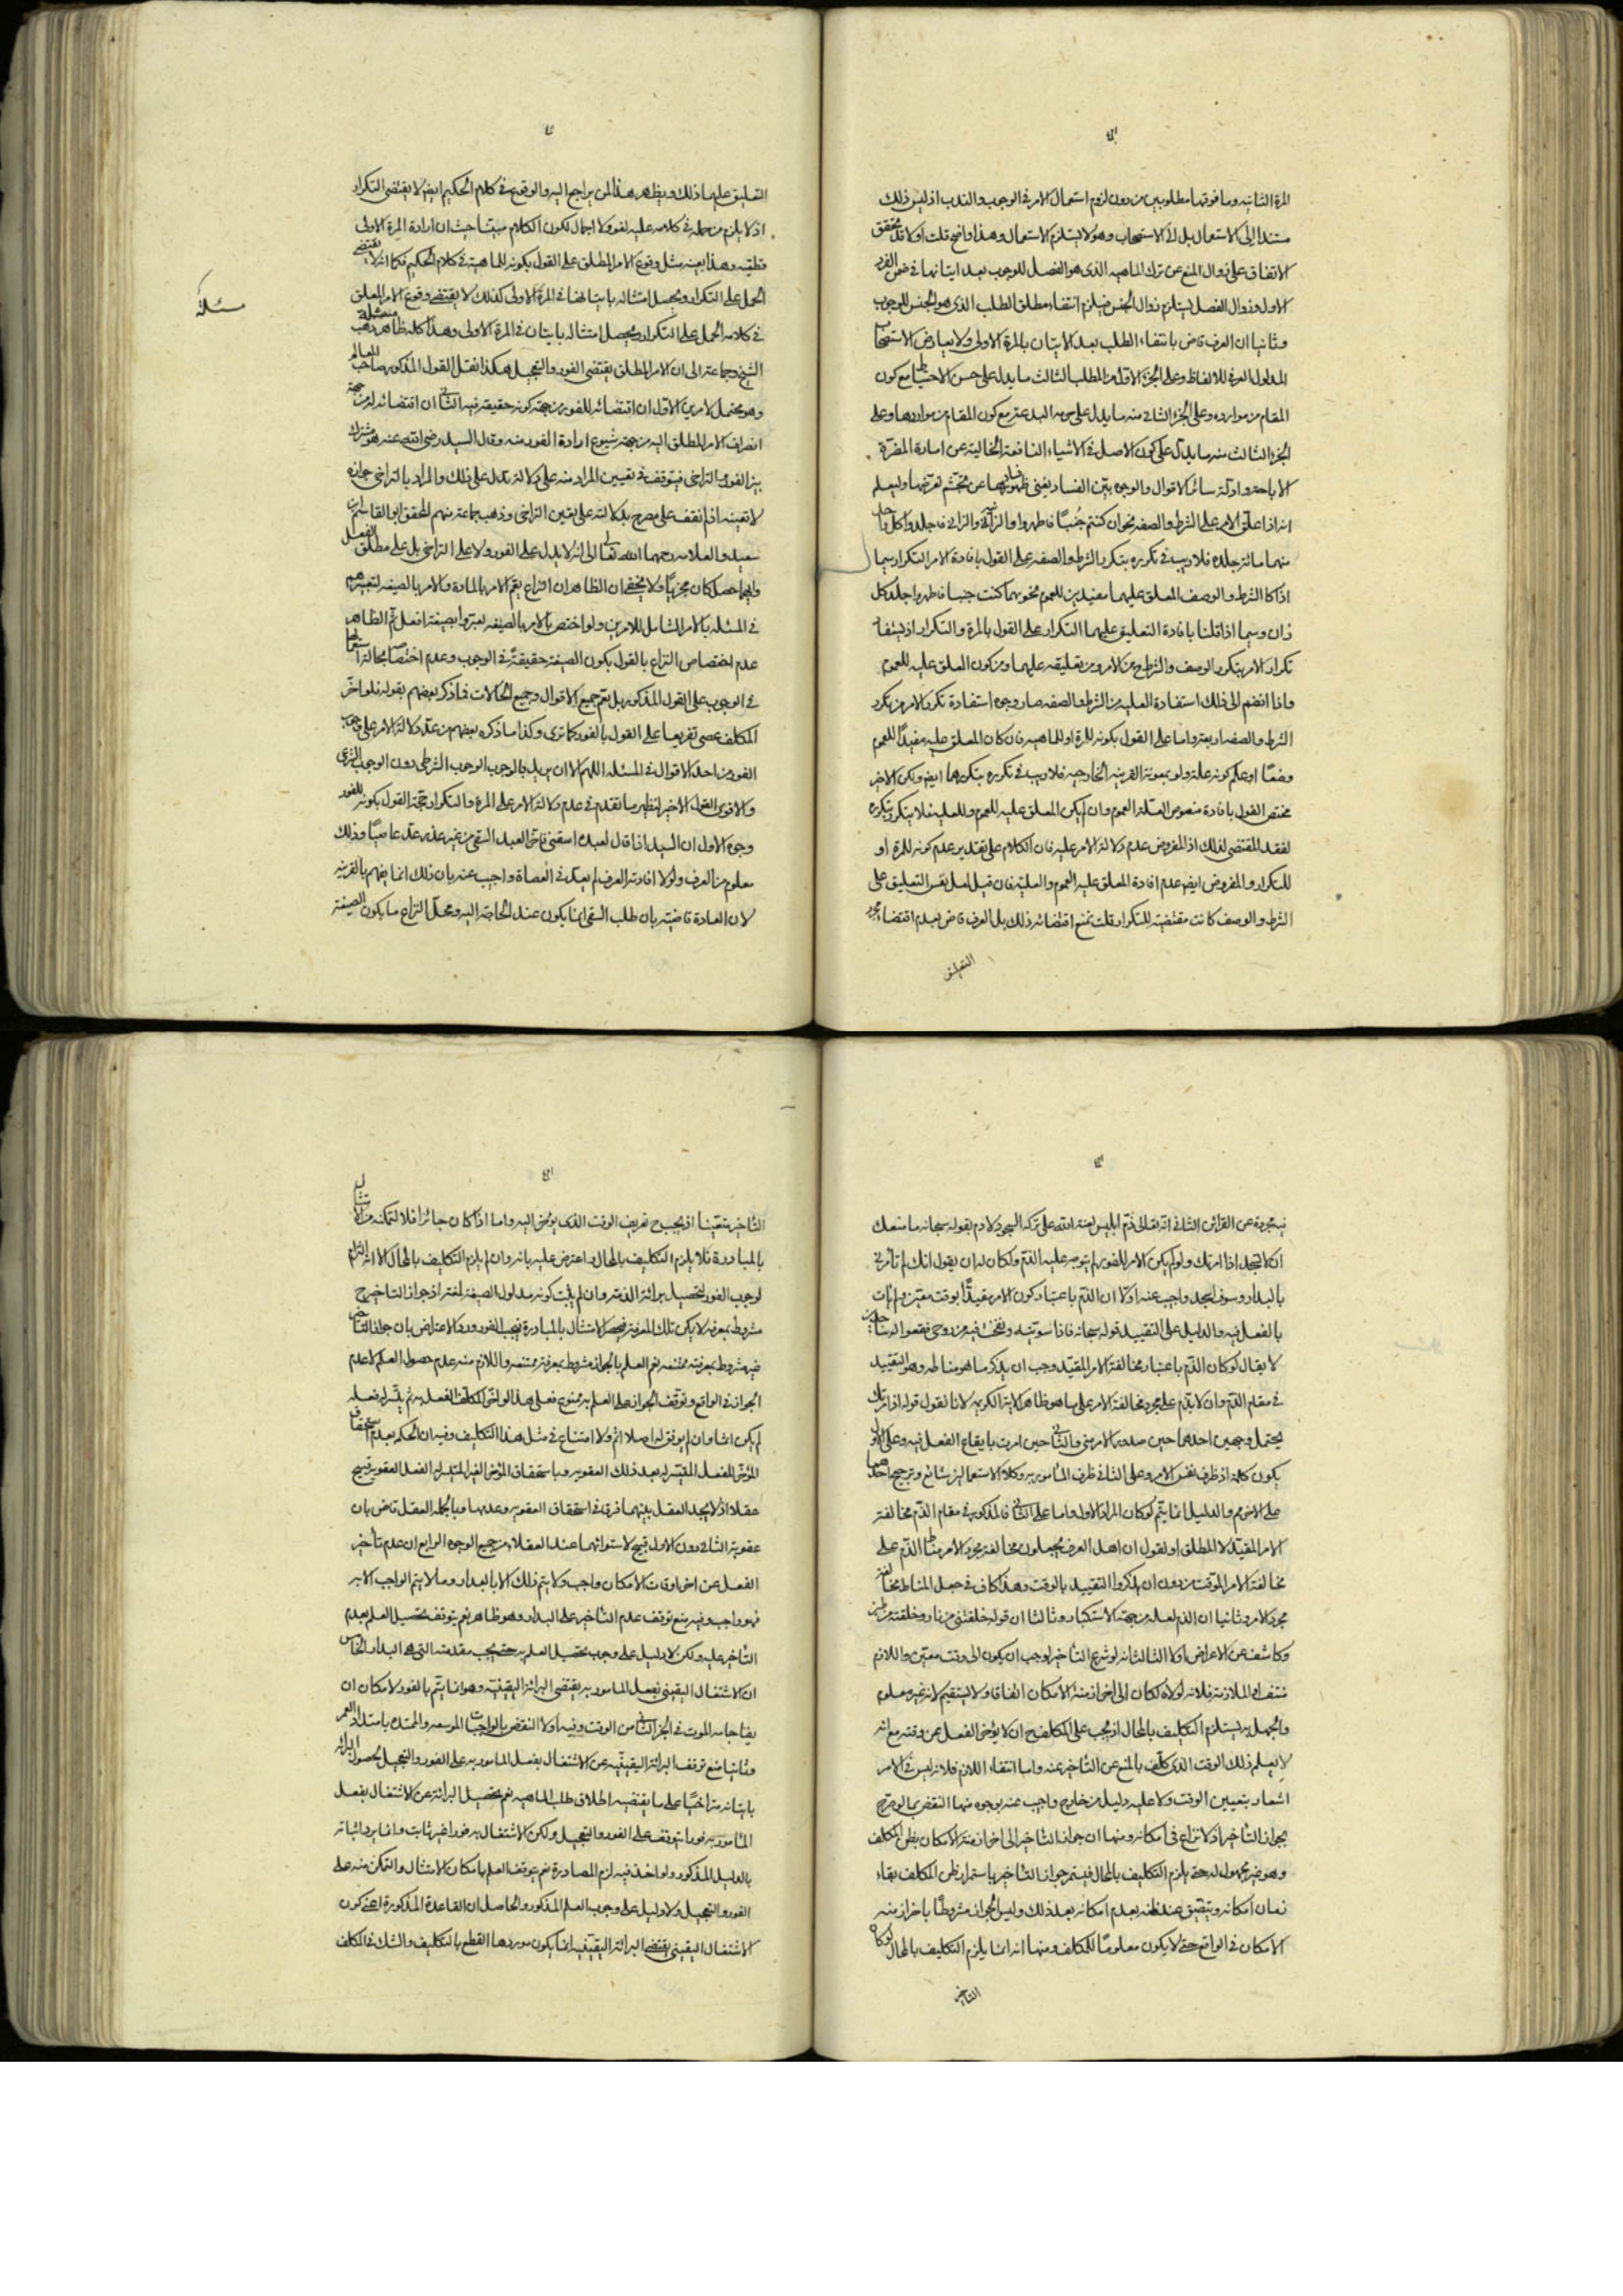 المرة الثانية وما فوقها مطلوبين من دون لزوم استعمال الامر في الوجوب والندب اذ ليس ذلك
مستندا الى الاستعمال بل الى الاستصحاب وهو لا يستلزم الاستعمال وهذا واضح قلت اولا قد تحقق
الاتفاق على زوال المنع عن ترك الماهية الذى هو الفصل للوجوب بعد ايتانها في ضمن الفرد
الاول وزوال الفصل يستلزم زوال الجنس فيلزم انتفاء مطلق الطلب الذى هو الجنس للوجوب
وثانيا ان العرف قاض بانتفاء الطلب بعد الايتان بالمرة الاولى ولا يعارض الاستصحاب
المدلول العرفي للالفاظ وعلى الجزء الاول من المطلب الثالث ما يدل على حسن الاحتياط مع كون
المقام من موارده وعلى الجزء الثاني منه ما يدل على حرمة البدعة مع كون المقام من مواردها وعلى
الجزء الثالث منه ما يدل على كون الاصل في الاشياء النافعة الخالية عن امارة المضرة
الاباحة وادلة سائر الاقوال والوجوه بين الفساد يغني ظهور فسادها عن تجشم تعرضها وليعلم
انه اذا علق الامر على الشرط والصفة نحو ان كنتم جنبًا فاطهروا والزانية والزاني فاجلدوا كل واحد
منهما مائة جلدة فلا ريب في تكريره بتكرر الشرط والصفة على القول بافادة الامر التكرار سيما
اذا كا الشرط والوصف المعلق عليهما مفيدين للعموم نحو مهما كنت جنبا فاطهر واجلد كل
زان وسيما اذا قلنا بافادة التعليق عليهما التكرار على القول بالمرة والتكرار اذ يستفاد
تكرار الامر بتكرر الوصف والشرط ح من الامر ومن تعليقه عليهما ومن كون المعلق عليه للعموم
واذا انضم الى ذلك استفادة العلية من الشرط والصفة صار وجوه استفادة تكرر الامر من تكرر
الشرط والصفة اربعة واما على القول بكونه للمرة او للماهية فان كان المعلق عليه مفيدًا للعموم
وضعًا او علم كونه علة ولو بمعونة القرينة الخارجية فلا ريب في تكرره بتكررهما ايضا ولكن الاخير
مختص القول بافادة منصوص العلة العموم وان لم يكن المعلق عليه للعموم وللعلية فلا يتكرر بتكرره
لفقد المقتضي لذلك اذ المفروض عدم دلالة الامر عليه فان الكلام على تقدير عدم كونه للمرة او
للتكرار والمفروض ايضا عدم افادة المعلق عليه العموم والعلية فان قيل لعل نفس التعليق على
الشرط والوصف كانت مقتضية للتكرار قلت نمنع اقتضائه ذلك بل العرف قاض بعدم اقتضاء مجرد
التعليق
التعليق عليهما ذلك ويظهر هذا لمن يراجع اليه والوقوع في كلام الحكيم ايضا لا يقتضى التكرار
اذ لا يلزم من حمله في كلامه عليه لغو ولا اجمال لكون الكلام مبينا حيث ان ارادة المرة الاولى
قطعية وهذا بعينه مثل وقوع الامر المطلق على القول بكونه للماهية في كلام الحكيم فكما انه لا يقتضى
الحمل على التكرار ويحصل امتثاله بايتانها في المرة الاولى كذلك لا يقتضى وقوع الامر المعلق
في كلامه الحمل على التكرار ويحصل امتثاله بايتان في المرة الاولى وهذا كله ظاهر مسئلة ذهب
مسئلة
الشيخ وجماعة الى ان الامر المطلق يقتضى الفور والتعجيل هكذا نقل القول المذكور صاحب المعالم
وهو محتمل لامرين الاول ان اقتضائه للفور من جهة كونه حقيقة فيه الثانى ان اقتضائه له من جهة
انصراف الامر المطلق اليه من جهة شيوع ارادة الفور منه وقال السيد رضى الله عنه هو مشترك
بين الفور والتراخى فيتوقف في تعيين المراد منه على دلالة تدل على ذلك والمراد بالتراخى جوازه
لا تعينه اذ لم نقف على مصرح بدلالته على تعين التراخى وذهب جماعة منهم المحقق ابو القاسم بن
سعيد والعلامة رحمهما الله تعالى الى انه لا يدل على الفور ولا على التراخى بل على مطلق الفعل
وايهما حصل كان مجزيًا ولا يخفى ان الظاهر ان النزاع يعم الامر بالمادة والامر بالصيغة لتعبيرهم
في المسئلة بالامر الشامل للامرين ولو اختص بالامر بالصيغة لعبروا بصيغة افعل ثم الظاهر
عدم اختصاص النزاع بالقول بكون الصيغة حقيقةً في الوجوب وعدم اختصاصها بحالة استعمالها
في الوجوب على القول المذكور بل يعم جميع الاقوال وجميع الحالات فما ذكر بعضهم بقوله فلو اخر
المكلف عصى تفريعا على القول بالفور كما ترى وكذا ما ذكره بعضهم من عد دلالة الامر على وجوب
الفور من احد الاقوال في المسئلة اللهم الا ان يريد بالوجوب الوجوب الشرطى دون الوجوب الشرعى
والاقوى القول الاخير لنظير ما تقدم في عدم دلالة الامر على المرة والتكرار حجة القول بكونه للفور
وجوه الاول ان السيد اذا قال لعبده اسقنى فاخر العبد السقى من غير عذر عد عاصيًا وذلك
معلوم من العرف ولولا افادته العرف لم يعد في العصاة واجيب عنه بان ذلك انما يفهم بالقرينة
لان العادة قاضية بان طلب السقى انما يكون عند الحاجة اليه ومحل النزاع ما يكون الصيغة
فيه مجردة عن القرائن الثانى انه تعالى ذم ابليس لعنه الله على تركه السجود لادم بقوله سبحانه ما منعك
ان لا تسجد اذ امرتك ولو لم يكن الامر للفور لم يتوجه عليه الذم ولكان له ان يقول انك لم تأمرني
بالبدار وسوف اسجد واجيب عنه اولا ان الذم باعتبار كون الامر مقيدًا بوقت معين ولم يأت
بالفعل فيه والدليل على التقييد قوله سبحانه فاذا سويته ونفخت فيه من روحى فقعوا له ساجدين
لا يقال لو كان الذم باعتبار مخالفة الامر المقيد وجب ان يذكر ما هو مناطه وهو التقييد
في مقام الذم وان لا يذم على مجرد مخالفة الامر على ما هو ظاهر الاية الكريمة لانا نقول قوله اذ امرتك
يحتمل وجهين احدهما حين صدور الامر منى والثانى حين امرت بايقاع الفعل فيه وعلى الاول
يكون كلمة اذ ظرف نفس الامر وعلى الثانى ظرف المأمور به وكلا الاستعمالين شائع وترجيح احدهما
على الاخر مم والدليل انما يتم لو كان المراد الاول واما على الثانى فالمذكور في مقام الذم مخالفة
الامر المقيد لا المطلق او نقول ان اهل العرف يجعلون مخالفة مجرد الامر مناط الذم على
مخالفة الامر الموقت من دون ان يذكروا التقييد بالوقت وهذا كاف في جعل المناط مخالفة
مجرد الامر وثانيا ان الذم لعله من جهة الاستكبار وثالثا ان قوله خلقتنى من نار وخلقته من طين
وكاشف عن الاعراض اولا الثالث انه لو شرع التأخير لوجب ان يكون الى وقت معين واللازم
منتف اما الملازمة فلانه لولاه لكان الى اخر ازمنة الامكان اتفاقا ولا يستقيم لانه غير معلوم
والجهل به يستلزم التكليف بالمحال اذ يجب على المكلف ح ان لا يؤخر الفعل عن وقته مع انه
لا يعلم ذلك الوقت الذى كلف بالمنع عن التأخير عنه واما انتفاء اللازم فلانه ليس في الامر
اشعار بتعيين الوقت ولا عليه دليل من خارج واجيب عنه بوجوه منها النقض بما لو صرح
بجواز التأخير اذ لا نزاع في امكانه ومنها ان جواز التأخير الى اخر ازمنة الامكان بظن المكلف
وهو غير مجهول له حتى يلزم التكليف بالمحال فيستمر جواز التأخير باستمرار ظن المكلف بقاء
زمان امكانه ويتضيق عند ظنه بعدم امكانه بعد ذلك وليس الجواز مشروطًا باخر ازمنة
الامكان في الواقع حتى لا يكون معلومًا للمكلف ومنها انه انما يلزم التكليف بالمحال لو كان
التأخير
التأخير متعينا اذ يجب ح تعريف الوقت الذى يؤخر اليه واما اذا كان جائزا فلا لتمكنه من الامتثال
بالمبادرة فلا يلزم التكليف بالمحال واعترض عليه بانه وان لم يلزم التكليف بالمحال الا انه التزام
لوجوب الفور لتحصيل برائة الذمة وان لم يثبت كونه مدلول الصيغة لغة اذ جواز التأخير ح
مشروط بمعرفة لا يكن تلك المعرفة فينحصر الامتثال بالمبادرة فيجب الفور ورد الاعتراض بان جواز التأخير
فيه مشروط بمعرفة ممتنعة نعم العلم بالجواز مشروط بمعرفة ممتنعه واللازم منه عدم حصول العلم لا عدم
الجواز في الواقع وتوقف الجواز على العلم به ممنوع فعلى هذا لو اخر المكلف الفعل به ثم يتسر له فعله
لم يكن اثما وان لم يوفق له اصلا اثم ولا امتناع في مثل هذا التكليف وفيه ان الحكم بعدم استحقاق
المؤخر للفعل المتيسر له بعد ذلك العقوبة وباستحقاق المؤخر الغير المتيسر له الفعل العقوبة قبيح
عقلا اذ لا يجد العقل بينهما فرقا في استحقاق العقوبة وعدمها وبالجملة العقل قاض بان
عقوبة الثانى دون الاول قبيح لاستوائهما عند العقلاء من جميع الوجوه الرابع ان عدم تأخير
الفعل عن اخر اوقات الامكان واجب ولا يتم ذلك الا بالبدار وما لا يتم الواجب الا به
فهو واجب وفيه منع توقف عدم التأخير على البدار وهو ظاهر نعم يتوقف تحصيل العلم بعدم
التأخير عليه ولكن لا دليل على وجوب تحصيل العلم به حتى يجب مقدمته التى هى البدار الخامس
ان الاشتغال اليقينى بفعل المأمور به يقتضى البرائة اليقينية وهو انما يتم بالفور لامكان ان
يفاجاه الموت في الجزء الثانى من الوقت وفيه اولا النقض بالواجبات الموسعة والممتدة بامتداد العمر
وثانيا منع توقف البرائة اليقينية عن الاشتغال بفعل المأمور به على الفور والتعجيل لحصول البرائة
بايتانه متراخيًا على ما يقتضيه اطلاق طلب الماهية نعم تحصيل البرائة عن الاشتغال بفعل
المأمور به فورا يتوقف على الفور والتعجيل ولكن الاشتغال به فورا غير ثابت وانما يراد اثباته
بالدليل المذكور ولو اخذ فيه لزم المصادرة نعم يتوقف العلم بامكان الامتثال والتمكن منه على
الفور والتعجيل ولا دليل على وجوب العلم المذكور والحاصل ان القاعدة المذكورة اعنى كون
الاشتغال اليقينى يقتضى البرائة اليقينية انما يكون موردها القطع بالتكليف والشك في المكلف